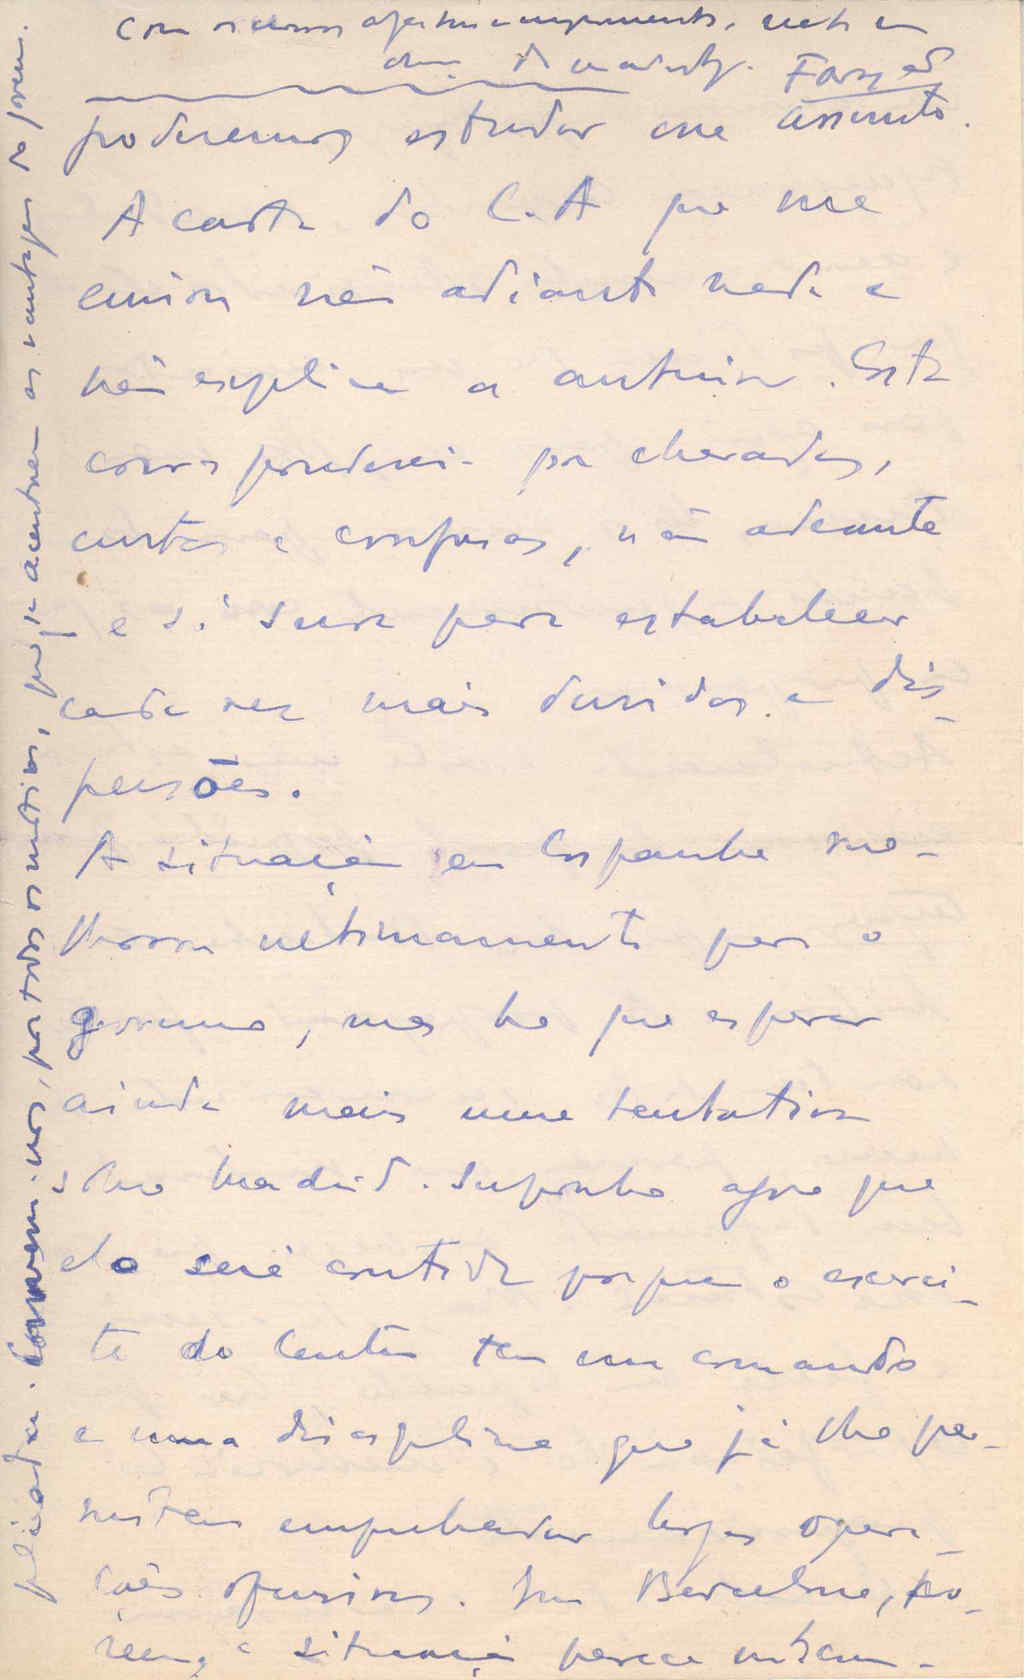 Com os nossos afectuosos cumprimentos,
de
poderemos estudar esse assunto.
A carta do C.A que me
enviou não adianta nada e
não explica a anterior. Esta
correspondencia por charadas,
curtas e confusas, não adeanta
e só serve para estabelecer
cada vez mais duvidas e dis-
persões.
A situação em Espanha me-
lhorou ultimamente para o
governo, mas ha que esperar
ainda mais uma tentativa
sobre Madrid. Suponho agora que
ela será contida porque o exerci-
to do Centro tem um comando
e uma disciplina que já lhe per-
mitem empreender largas opera-
ções ofensivas. Em Barcelona, po-
rém, a situação parece
plicada. Convem-nos, por todos os motivos, que se acentuem as vantagens do govern.